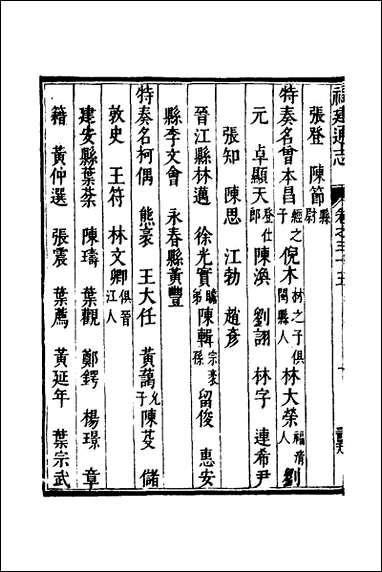 福建通志 卷之三十五
張登 陳節縣尉
特奏名曾本昌經之子倪木材之子俱閩縣人林大榮福清人劉
元 卓顯天登仕郎陳渙 劉詡 林字 連希尹
張知 陳思 江勃 趙彥
晉江縣林邁 徐光實瞻弟陳輯宗裘孫留俊 惠安
縣李文會 永春縣黃豐
特奏名柯偶 熊裘 王大任 黃藹允子陳芟 儲
敦史 王符 林文卿俱晉江人
建安縣葉棻 陳璹 葉觀 鄭鍔 楊璟 章
籍 黃仲選 張震 葉薦 黃延年 葉宗武